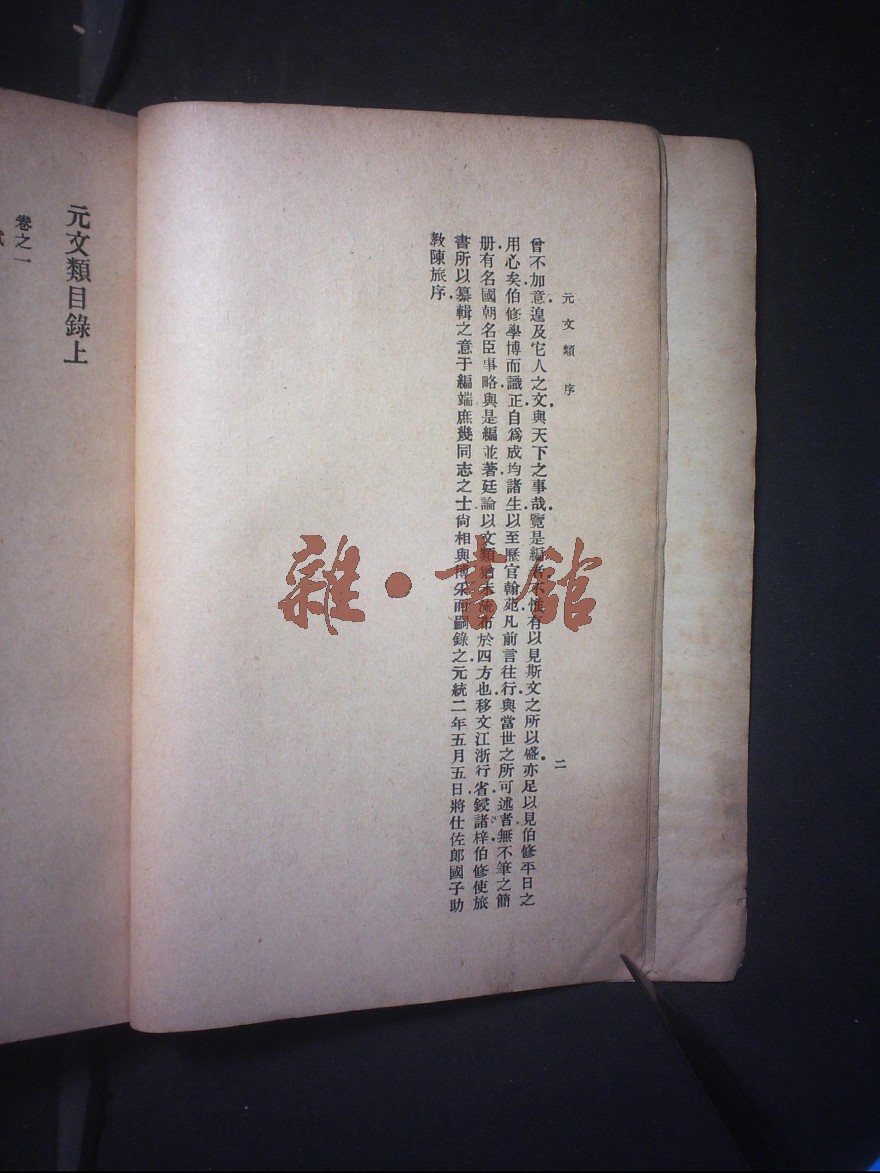 元文類序
二
曾不加意遑及它人之文與天下之事哉覽是編者不惟有以見斯文之所以盛亦足以見伯修平日之
用心矣伯修學博而識正自爲成均諸生以至歷官翰苑凡前言往行與當世之所可述者無不筆之簡
册有名國朝名臣事略與是編並著廷論以文類猶未流布於四方也移文江浙行省鋟諸梓伯修使旅
書所以纂輯之意于編端庶幾同志之士尙相與博采而嗣錄之元統二年五月五日將仕佐郎國子助
教陳旅序
元文類目錄上
卷之一
雜·書館